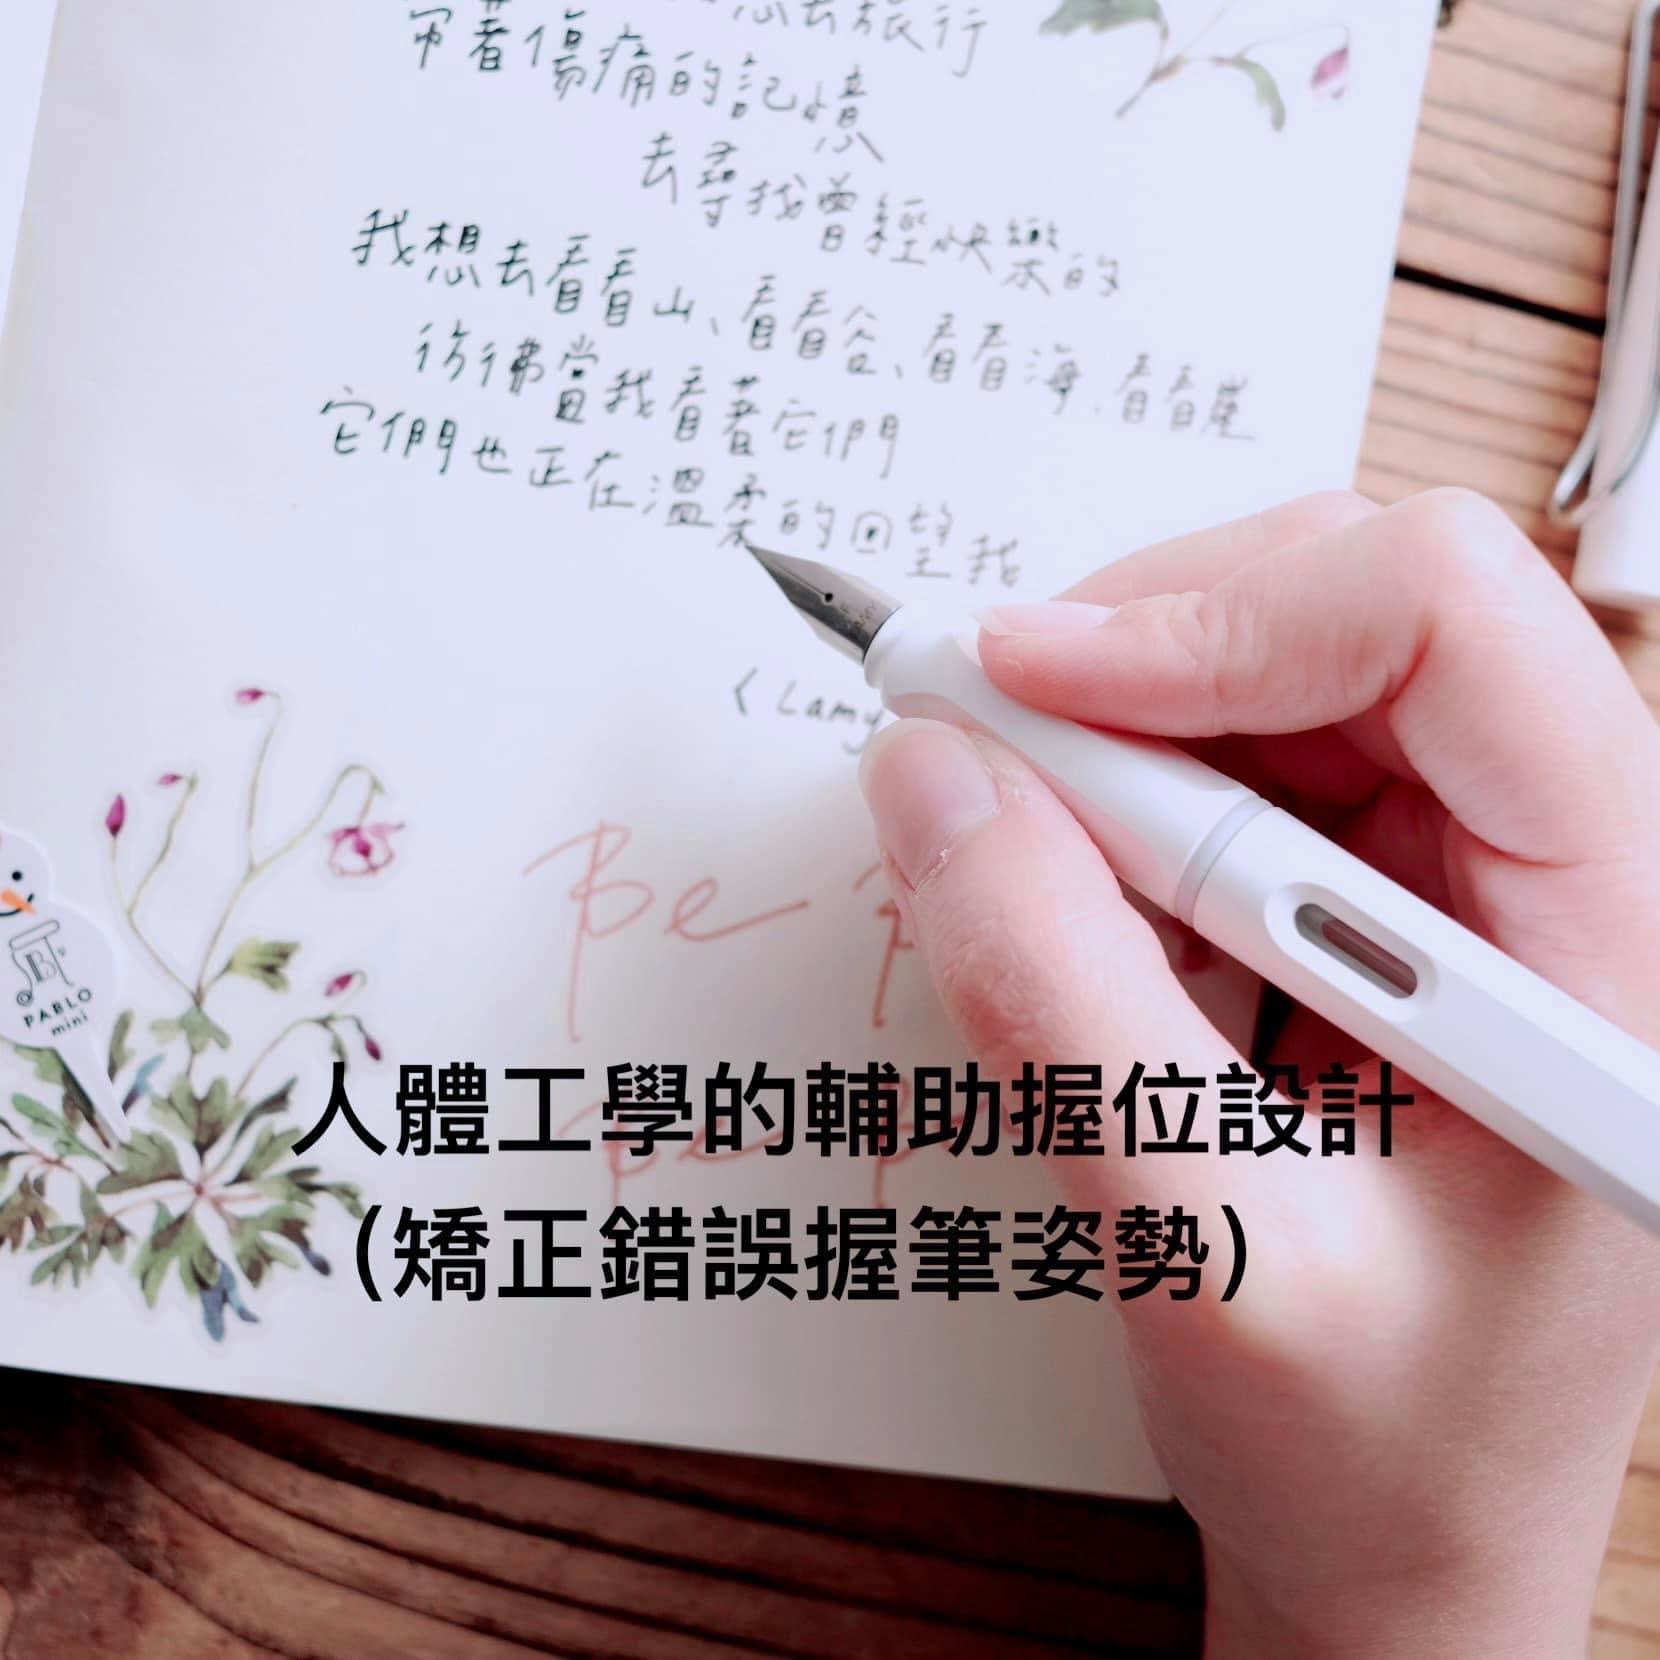 想去旅行
帶著傷痛的記憶
去尋找曾經快樂的
我想去看看山、看看谷、看看海、看看崖
彷彿當我看著它們
它們也正在溫柔的回望我
< Lamy
Be
人體工學的輔助握位設計
（矯正錯誤握筆姿勢）
PABLO
mini